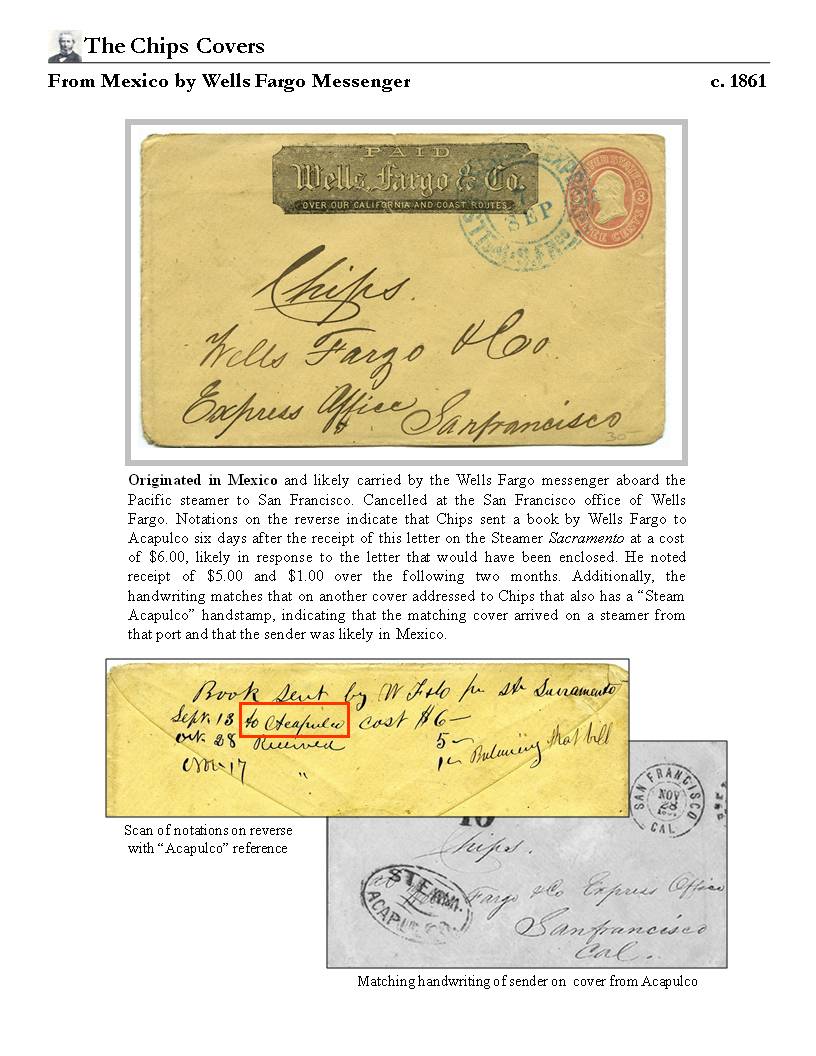 The Chips Covers
From Mexico by Wells Fargo Messenger c. 1861
PAID
Wells, Fargo & Co.
OVER OUR CALIFORNIA AND COAST ROUTES.
SEP
Chips.
Wells Fargo & Co
Express Office Sanfrancisco
30
Originated in Mexico and likely carried by the Wells Fargo messenger aboard the
Pacific steamer to San Francisco. Cancelled at the San Francisco office of Wells
Fargo. Notations on the reverse indicate that Chips sent a book by Wells Fargo to
Acapulco six days after the receipt of this letter on the Steamer Sacramento at a cost
of $6.00, likely in response to the letter that would have been enclosed. He noted
receipt of $5.00 and $1.00 over the following two months. Additionally, the
handwriting matches that on another cover addressed to Chips that also has a “Steam
Acapulco” handstamp, indicating that the matching cover arrived on a steamer from
that port and that the sender was likely in Mexico.
Book sent by W F & Co pr Str Sacramento
Sept. 13 to Acapulco cost $6–
Oct. 28 Received 5–
Nov. 17 " 1– Balancing that bill
SAN FRANCISCO
NOV
28
CAL
10
Chips.
Fargo & Co Express Office
STEAM.
ACAPULCO.
Sanfrancisco
Cal.
Scan of notations on reverse
with “Acapulco” reference
Matching handwriting of sender on cover from Acapulco